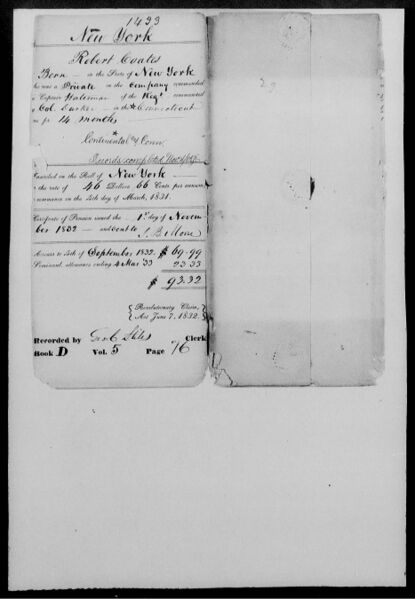 1433
New York
Robert Coates
in the State of New York
he was a Private in the Company commanded
Captain of the Regt commanded
by Col. in the Connecticut
for 14 months
*
Continental & Conn.
Records completed
Inscribed on the Roll of New York
the rate of 46 Dollars 66 Cents per annum
commence on the 4th day of March, 1831.
Certificate of Pension issued the 1st day of Novem
ber 1832 and sent to J. B.
Arrears to 4th of September 1832 $ 69.99
Semi-anl. allowance ending 4 Mar 33 23.33
$ 93.32
Revolutionary Claim,
Act June 7, 1832.
Recorded by Geo C Stiles Clerk
Book D Vol. 5 Page 76